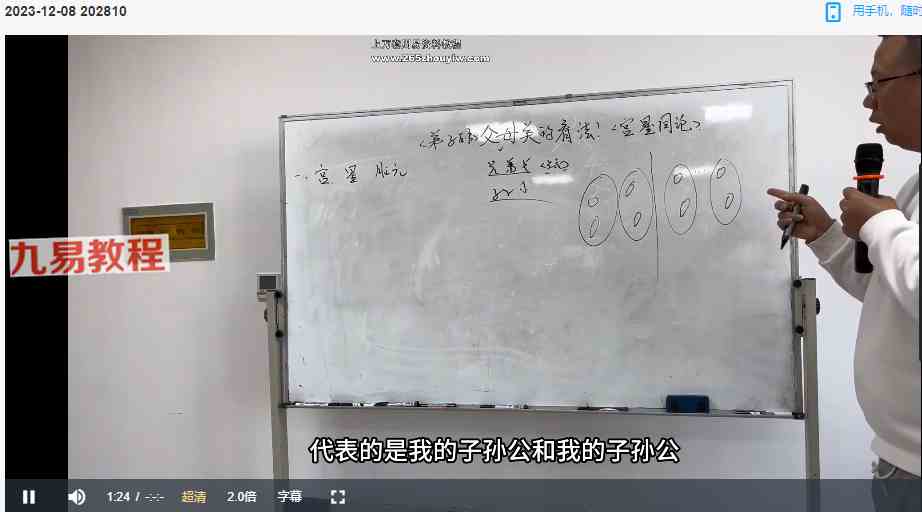 2023-12-08 202810
用手机，随时
上万套周易资料教程
www.265zhouyiw.com
父母关的看法！〈宫星同论〉
一、宫 星
九易教程
代表的是我的子孙公和我的子孙公
1:24 / -:-:-
超清
2.0倍
字幕